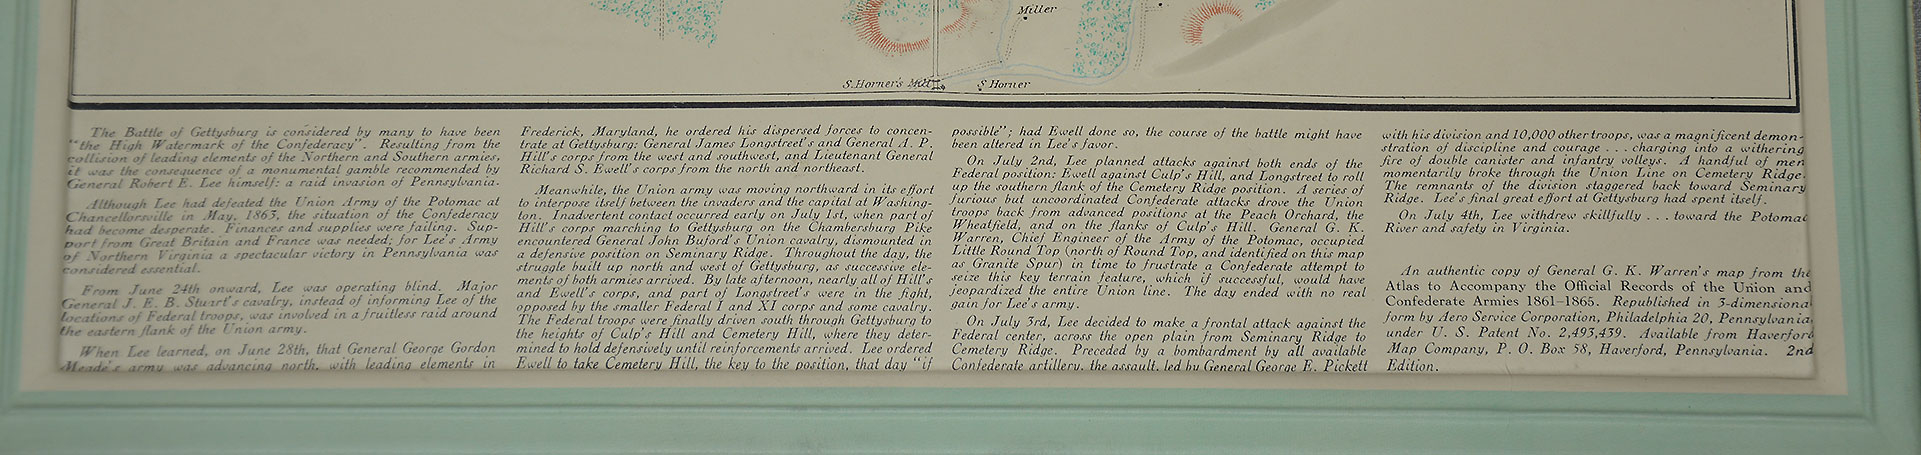 Miller
S. Horner's Mill
S Horner
The Battle of Gettysburg is considered by many to have been
"the High Watermark of the Confederacy". Resulting from the
collision of leading elements of the Northern and Southern armies,
it was the consequence of a monumental gamble recommended by
General Robert E. Lee himself: a raid invasion of Pennsylvania.
Although Lee had defeated the Union Army of the Potomac at
Chancellorsville in May, 1863, the situation of the Confederacy
had become desperate. Finances and supplies were failing. Sup-
port from Great Britain and France was needed; for Lee's Army
of Northern Virginia a spectacular victory in Pennsylvania was
considered essential.
From June 24th onward, Lee was operating blind. Major
General J. E. B. Stuart's cavalry, instead of informing Lee of the
locations of Federal troops, was involved in a fruitless raid around
the eastern flank of the Union army.
When Lee learned, on June 28th, that General George Gordon
Meade's army was advancing north, with leading elements in
Frederick, Maryland, he ordered his dispersed forces to concen-
trate at Gettysburg: General James Longstreet's and General A. P.
Hill's corps from the west and southwest, and Lieutenant General
Richard S. Ewell's corps from the north and northeast.
Meanwhile, the Union army was moving northward in its effort
to interpose itself between the invaders and the capital at Washing-
ton. Inadvertent contact occurred early on July 1st, when part of
Hill's corps marching to Gettysburg on the Chambersburg Pike
encountered General John Buford's Union cavalry, dismounted in
a defensive position on Seminary Ridge. Throughout the day, the
struggle built up north and west of Gettysburg, as successive ele-
ments of both armies arrived. By late afternoon, nearly all of Hill's
and Ewell's corps, and part of Longstreet's were in the fight,
opposed by the smaller Federal I and XI corps and some cavalry.
The Federal troops were finally driven south through Gettysburg to
the heights of Culp's Hill and Cemetery Hill, where they deter-
mined to hold defensively until reinforcements arrived. Lee ordered
Ewell to take Cemetery Hill, the key to the position, that day "if
possible"; had Ewell done so, the course of the battle might have
been altered in Lee's favor.
On July 2nd, Lee planned attacks against both ends of the
Federal position: Ewell against Culp's Hill, and Longstreet to roll
up the southern flank of the Cemetery Ridge position. A series of
furious but uncoordinated Confederate attacks drove the Union
troops back from advanced positions at the Peach Orchard, the
Wheatfield, and on the flanks of Culp's Hill. General G. K.
Warren, Chief Engineer of the Army of the Potomac, occupied
Little Round Top (north of Round Top, and identified on this map
as Granite Spur) in time to frustrate a Confederate attempt to
seize this key terrain feature, which if successful, would have
jeopardized the entire Union line. The day ended with no real
gain for Lee's army.
On July 3rd, Lee decided to make a frontal attack against the
Federal center, across the open plain from Seminary Ridge to
Cemetery Ridge. Preceded by a bombardment by all available
Confederate artillery, the assault, led by General George E. Pickett
with his division and 10,000 other troops, was a magnificent demon-
stration of discipline and courage . . . charging into a withering
fire of double canister and infantry volleys. A handful of men
momentarily broke through the Union Line on Cemetery Ridge.
The remnants of the division staggered back toward Seminary
Ridge. Lee's final great effort at Gettysburg had spent itself.
On July 4th, Lee withdrew skillfully . . . toward the Potomac
River and safety in Virginia.
An authentic copy of General G. K. Warren's map from the
Atlas to Accompany the Official Records of the Union and
Confederate Armies 1861-1865. Republished in 3-dimensional
form by Aero Service Corporation, Philadelphia 20, Pennsylvania,
under U. S. Patent No. 2,493,439. Available from Haverford
Map Company, P. O. Box 58, Haverford, Pennsylvania. 2nd
Edition.